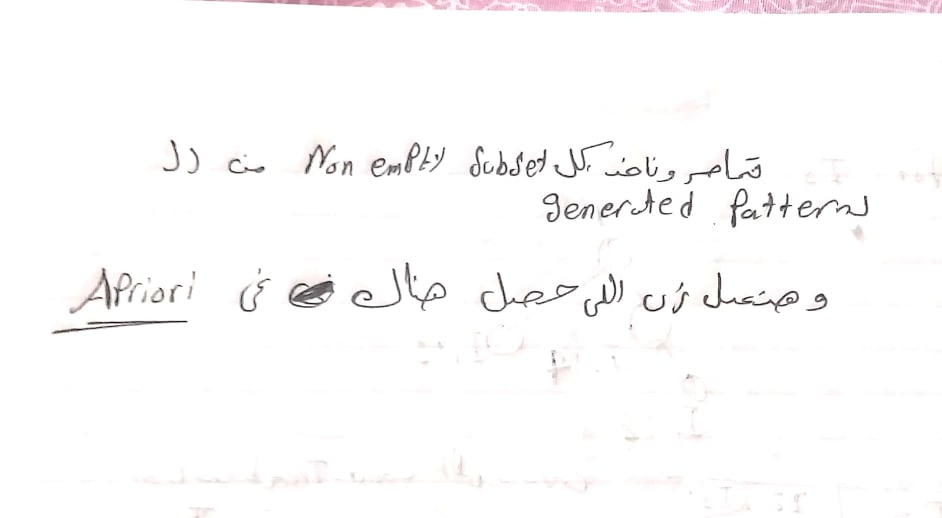 وناخد كل Non empty subset من ال
generated Patterns
وهنعمل زى اللى حصل هناك فى Apriori